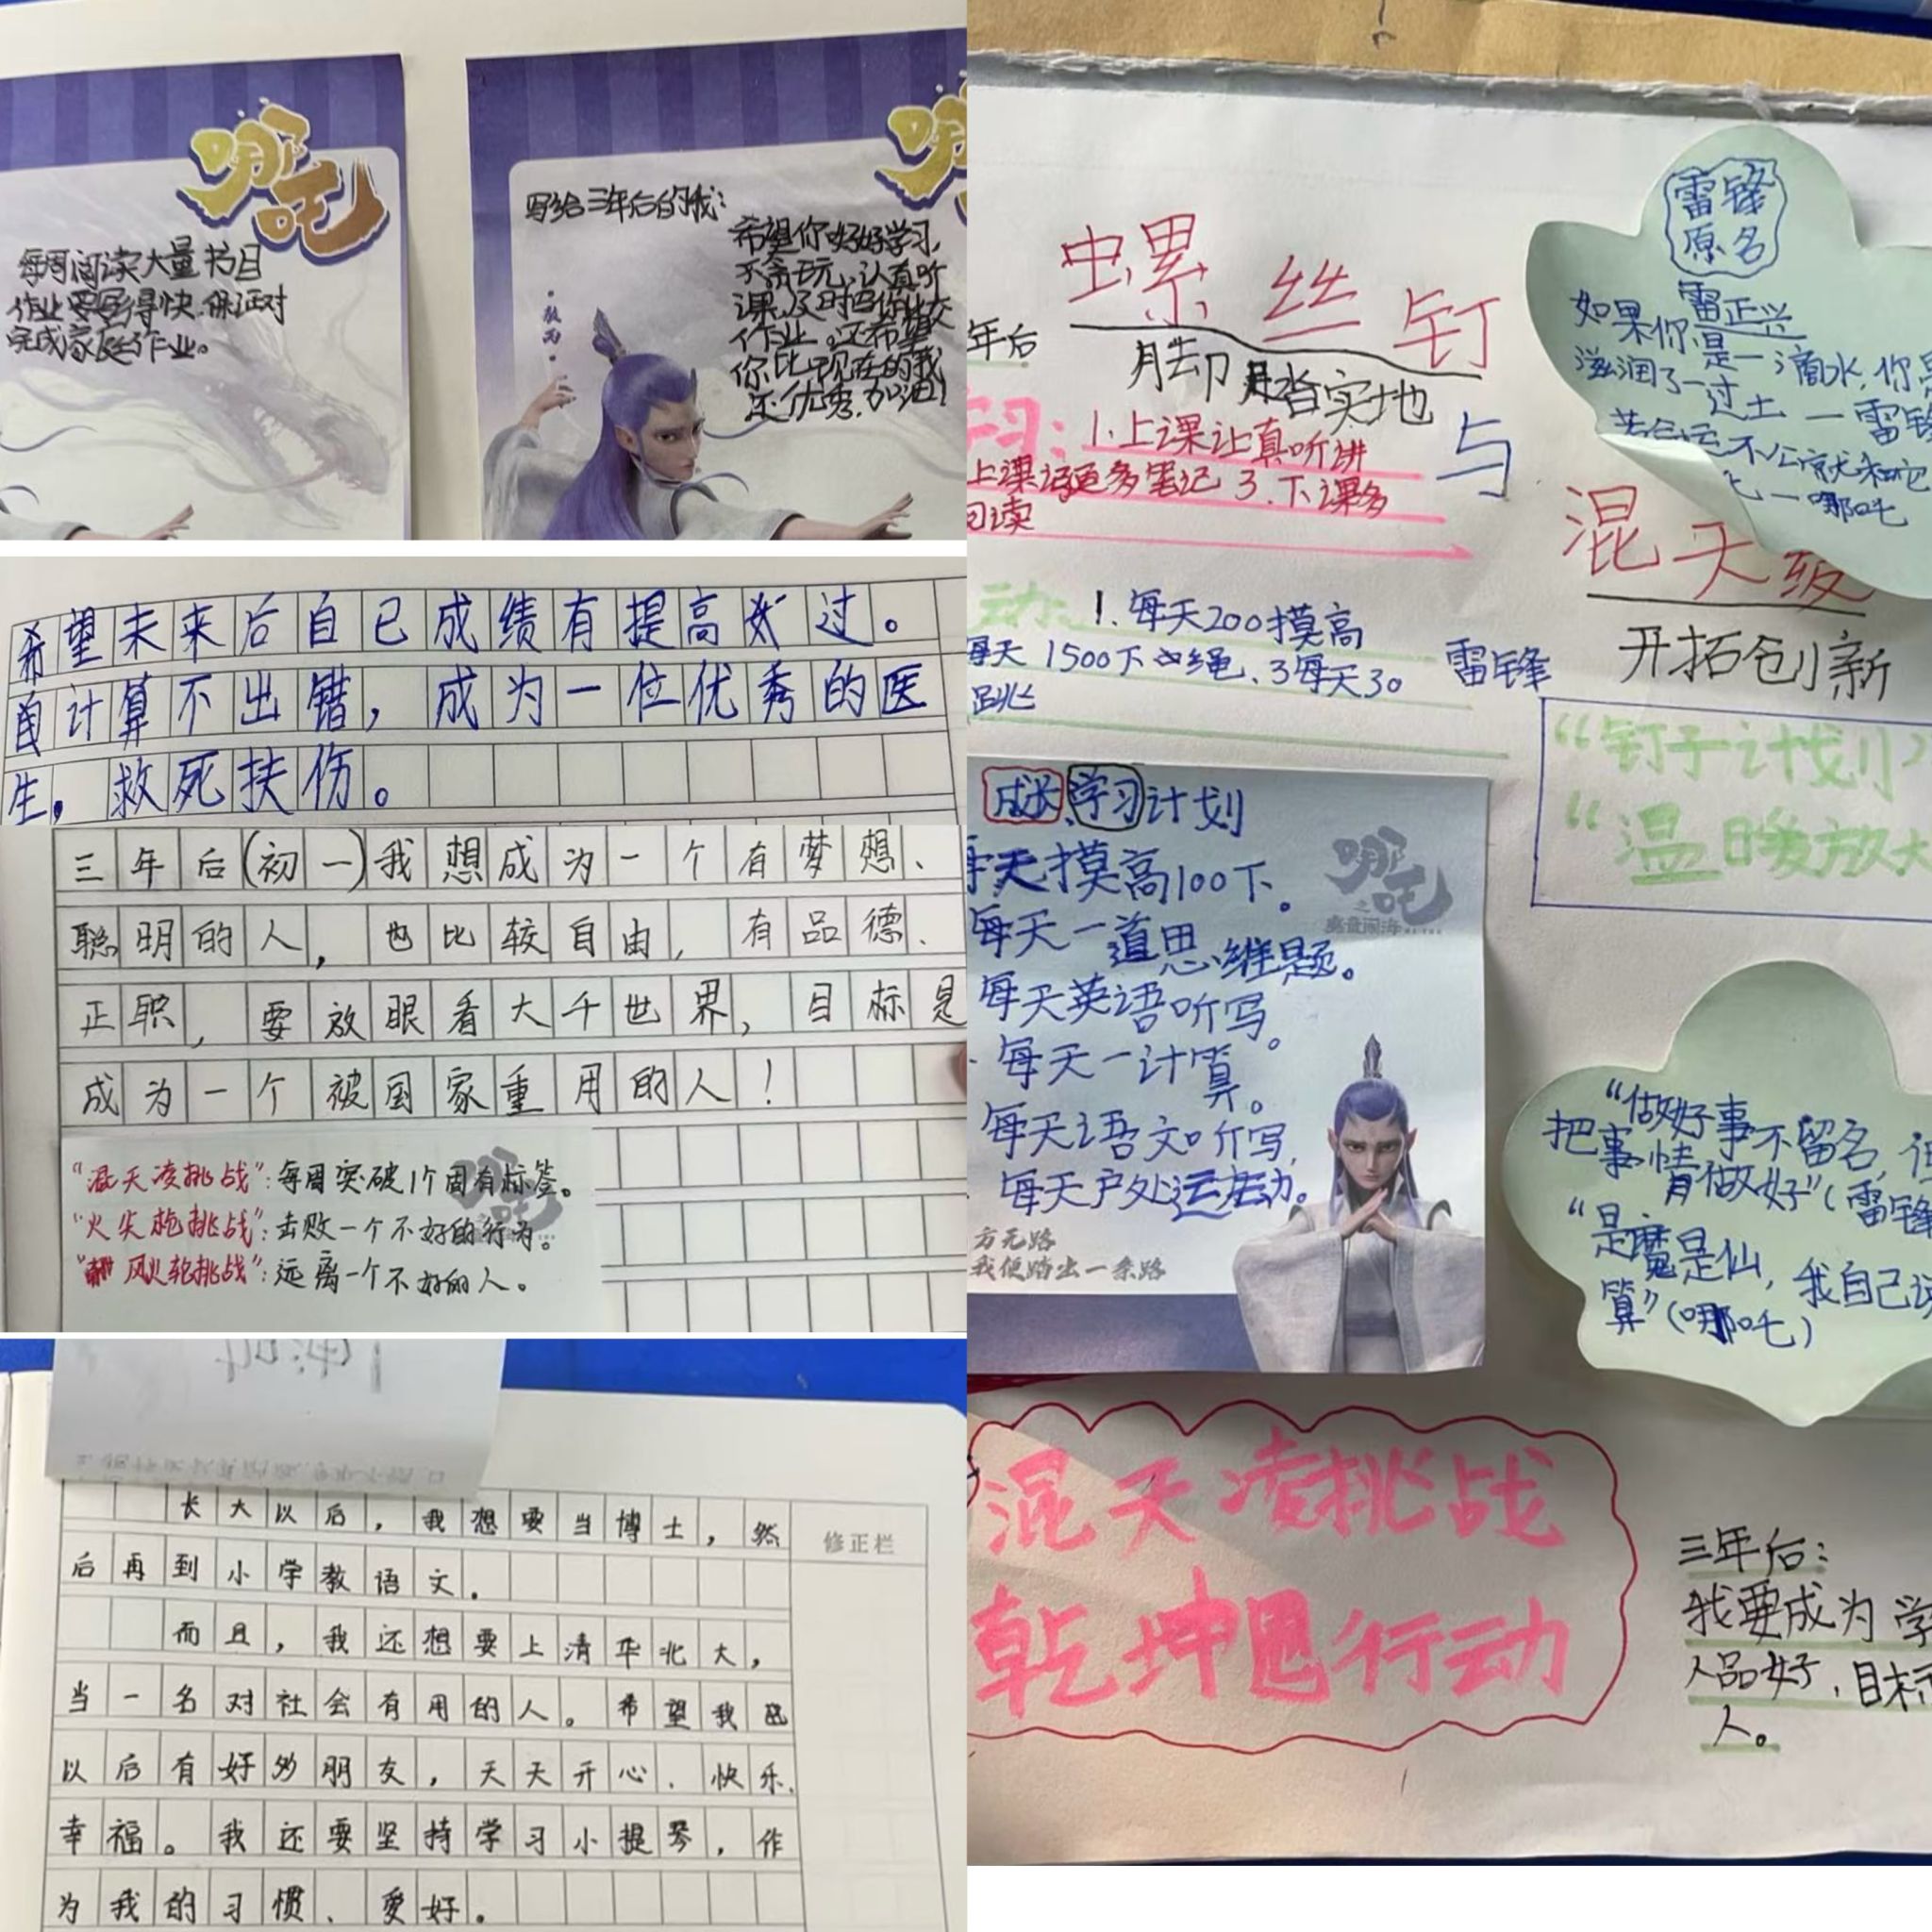 哪吒
每周阅读大量书目
作业要写得快.保证对
完成家庭作业。
写给三年后的我:
希望你好好学习,
不贪玩、认真听
课,及时
作业,还希望
你比现在的我
还优秀,加油!
敖丙
希望未来后自己成绩有提高 过。
计算不出错,成为一位优秀的医
生,救死扶伤。
三年后(初一)我想成为一个有梦想、
聪明的人,也比较自由,有品德、
正职,要放眼看大千世界,目标是
成为一个被国家重用的人!
“混天凌挑战”:每周突破1个固有标签。
“火尖枪挑战”:击败一个不好的行为。
“风火轮挑战”:远离一个不好的人。
长大以后,我想要当博士,然
后再到小学教语文.
而且,我还想要上清华北大,
当一名对社会有用的人。希望我
以后有好多朋友,天天开心、快乐、
幸福。我还要坚持学习小提琴,作
为我的习惯、爱好。
修正栏
螺丝钉
脚踏实地
与
混天绫
开拓创新
年后
习:1.上课让真听讲
上课记更多笔记 3.下课多
阅读
动:1.每天200摸高
每天1500下 绳、3每天30
跳
雷锋
“钉子计划”
“温暖放大
雷锋
原名
雷正兴
如果你是一滴水,你
滋润了一过土—雷锋
若命运不公就和它
—哪吒
成长、学习计划
每天摸高100下。
每天一道思维题。
每天英语听写。
每天一计算。
每天语文听写,
每天户外运动。
哪吒
之
魔童闹海
方无路
我便踏出一条路
“做好事不留名,但
把事情做好”(雷锋
“是魔是仙,我自己说
算”(哪吒)
混天凌挑战
乾坤 行动
三年后:
我要成为学
人品好,目标
人。